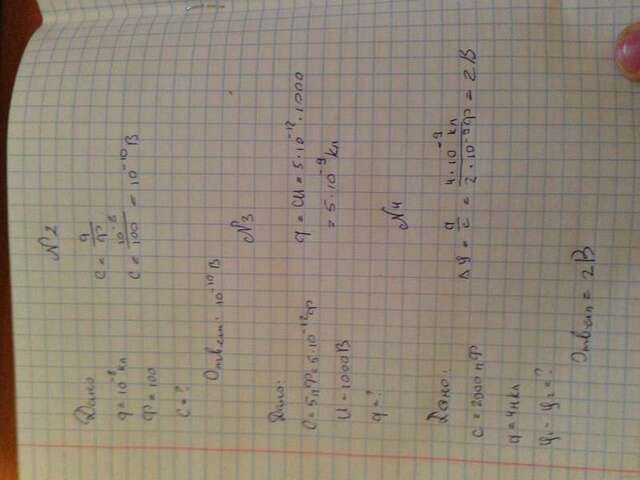 №2
Дано
q = 10⁻⁸ кл
φ = 100
C = ?
C = q/φ
C = 10⁻⁸/100 = 10⁻¹⁰ В
Ответ: 10⁻¹⁰ В
№3
Дано:
C = 5пФ = 5·10⁻¹²ф
U = 1000В
q = ?
q = CU = 5·10⁻¹²·1000
= 5·10⁻⁹ кл
№4
Дано:
C = 2000 пФ
q = 4нкл
φ₁ - φ₂ = ?
Δφ = q/c = 4·10⁻⁹ кл/2·10⁻⁹ф = 2В
Ответ = 2В